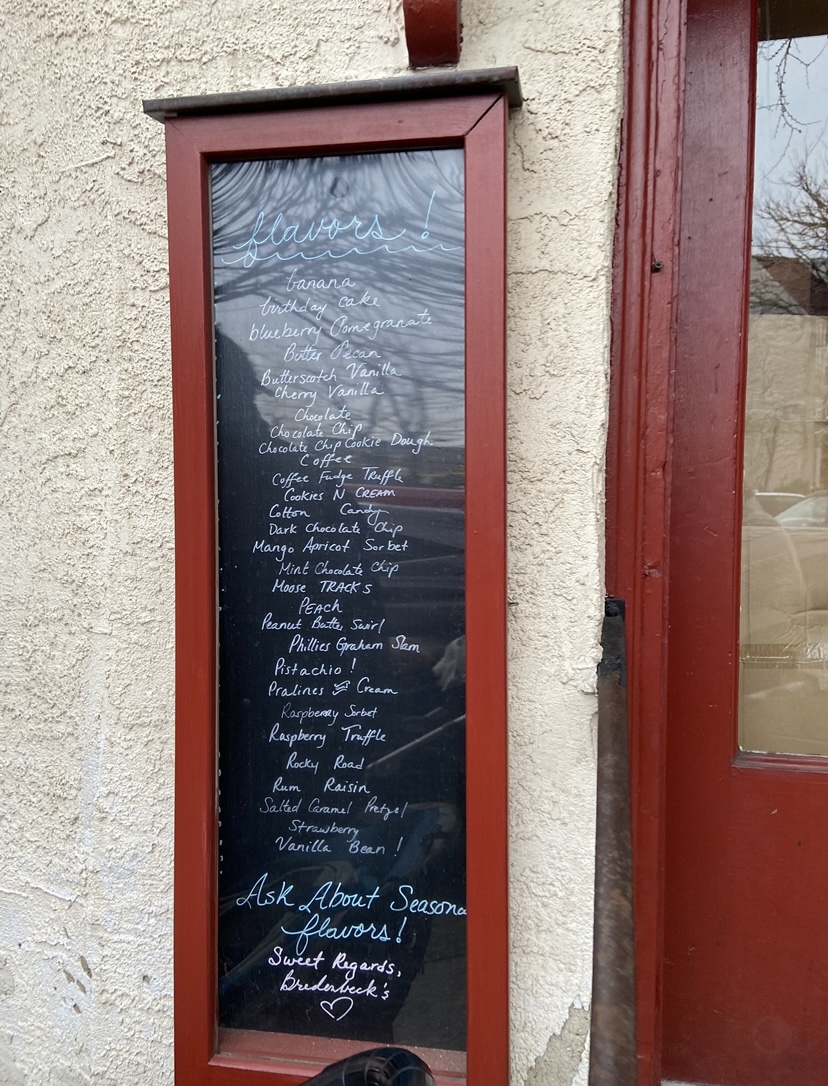 flavors!
banana
birthday cake
blueberry Pomegranate
Butter Pecan
Butterscotch Vanilla
Cherry Vanilla
Chocolate
Chocolate Chip
Chocolate Chip Cookie Dough
Coffee
Coffee Fudge Truffle
Cookies N CREAM
Cotton Candy
Dark Chocolate Chip
Mango Apricot Sorbet
Mint Chocolate Chip
Moose TRACKS
PEACH
Peanut Butter Swirl
Phillies Graham Slam
Pistachio!
Pralines & Cream
Raspberry Sorbet
Raspberry Truffle
Rocky Road
Rum Raisin
Salted Caramel Pretzel
Strawberry
Vanilla Bean!
Ask About Seasona
flavors!
Sweet Regards,
Bredenbeck's